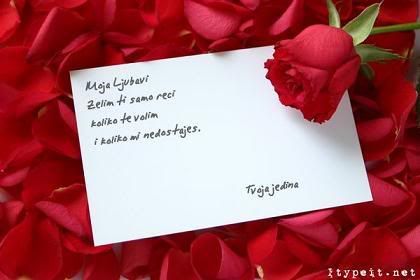 Moja Ljubavi
Zelim ti samo reci
koliko te volim
i koliko mi nedostajes.
Tvoja jedina
itypeit.net